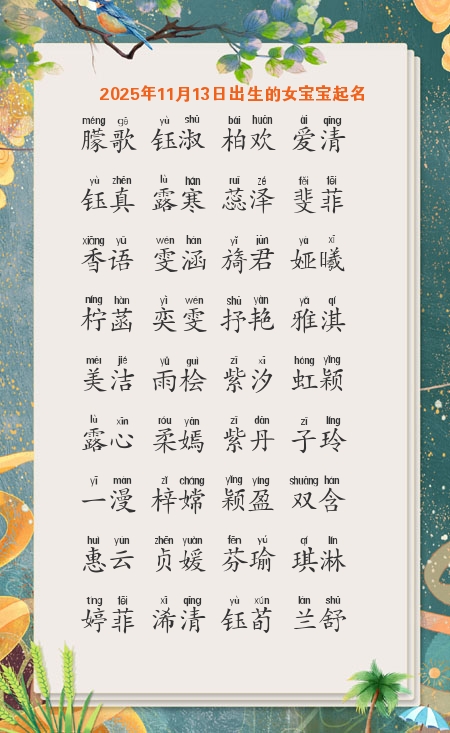 2025年11月13日出生的女宝宝起名
méng gē yù shū bái huān ài qīng
朦歌 钰淑 柏欢 爱清
yù zhēn lù hán ruǐ zé fěi fēi
钰真 露寒 蕊泽 斐菲
xiāng yǔ wén hán yǐ jūn yà xī
香语 雯涵 旖君 娅曦
níng hàn yì wén shū yàn yǎ qí
柠菡 奕雯 抒艳 雅淇
měi jié yǔ guì zǐ xī hóng yǐng
美洁 雨桧 紫汐 虹颖
lù xīn róu yān zǐ dān zǐ líng
露心 柔嫣 紫丹 子玲
yī màn zǐ cháng yǐng yíng shuāng hán
一漫 梓嫦 颖盈 双含
huì yún zhēn yuàn fēn yú qí lín
惠云 贞媛 芬瑜 琪淋
tíng fēi xī qīng yù xún lán shū
婷菲 浠清 钰荀 兰舒